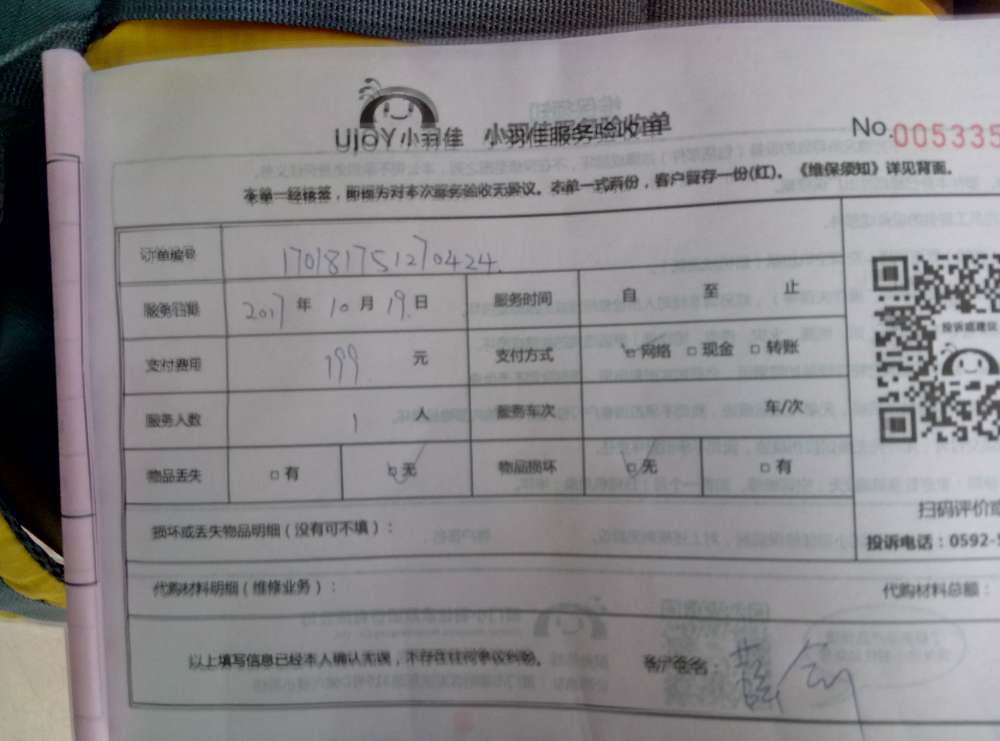 UJOY小羽佳 小羽佳服务验收单
No.005335
本单一经接签，即视为对本次服务验收无异议。本单一式两份，客户留存一份(红)。《维保须知》详见背面。
订单编号 170181751270424
服务日期 2017 年 10 月 19 日 服务时间 自 至 止
支付费用 199 元 支付方式 □网络 □现金 □转账
服务人数 1 人 服务车次 车/次
物品丢失 □有 □无 物品损坏 □无 □有
投诉或建议
扫码评价或
损坏或丢失物品明细（没有可不填）：
投诉电话：0592-5
代购材料明细（维修业务）：
代购材料总额：
以上填写信息已经本人确认无误，不存在任何争议纠纷。 客户签名：